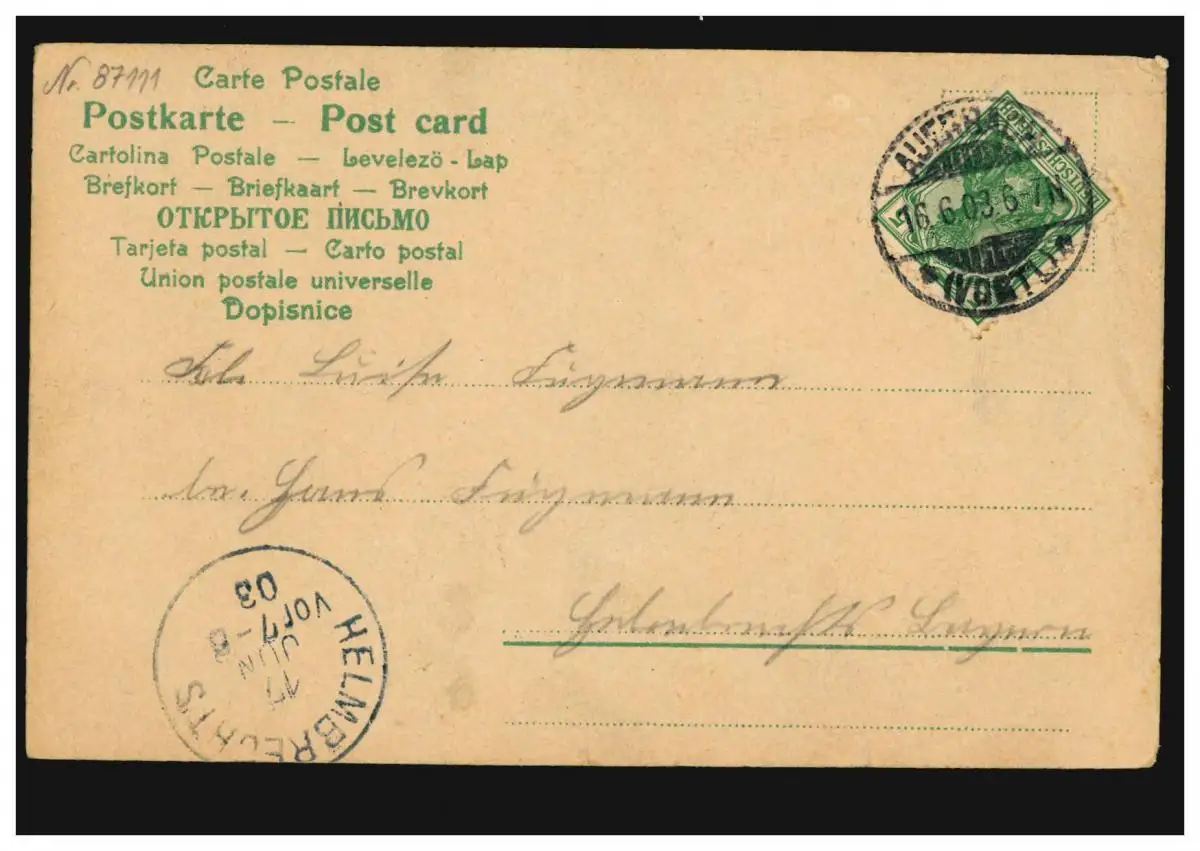 Nr. 87111
Carte Postale
Postkarte – Post card
Cartolina Postale — Levelezö - Lap
Brefkort — Briefkaart — Brevkort
ОТКРЫТОЕ ПИСЬМО
Tarjeta postal — Carto postal
Union postale universelle
Dopisnice
AUERBACH
16.6.03. 6-7N
* (VOGTL.) *
Frl. Luise Fugmann
br. Hans Fugmann
Helmbrechts Bayern
HELMBRECHTS
17
JUN
VOR 7-8
03